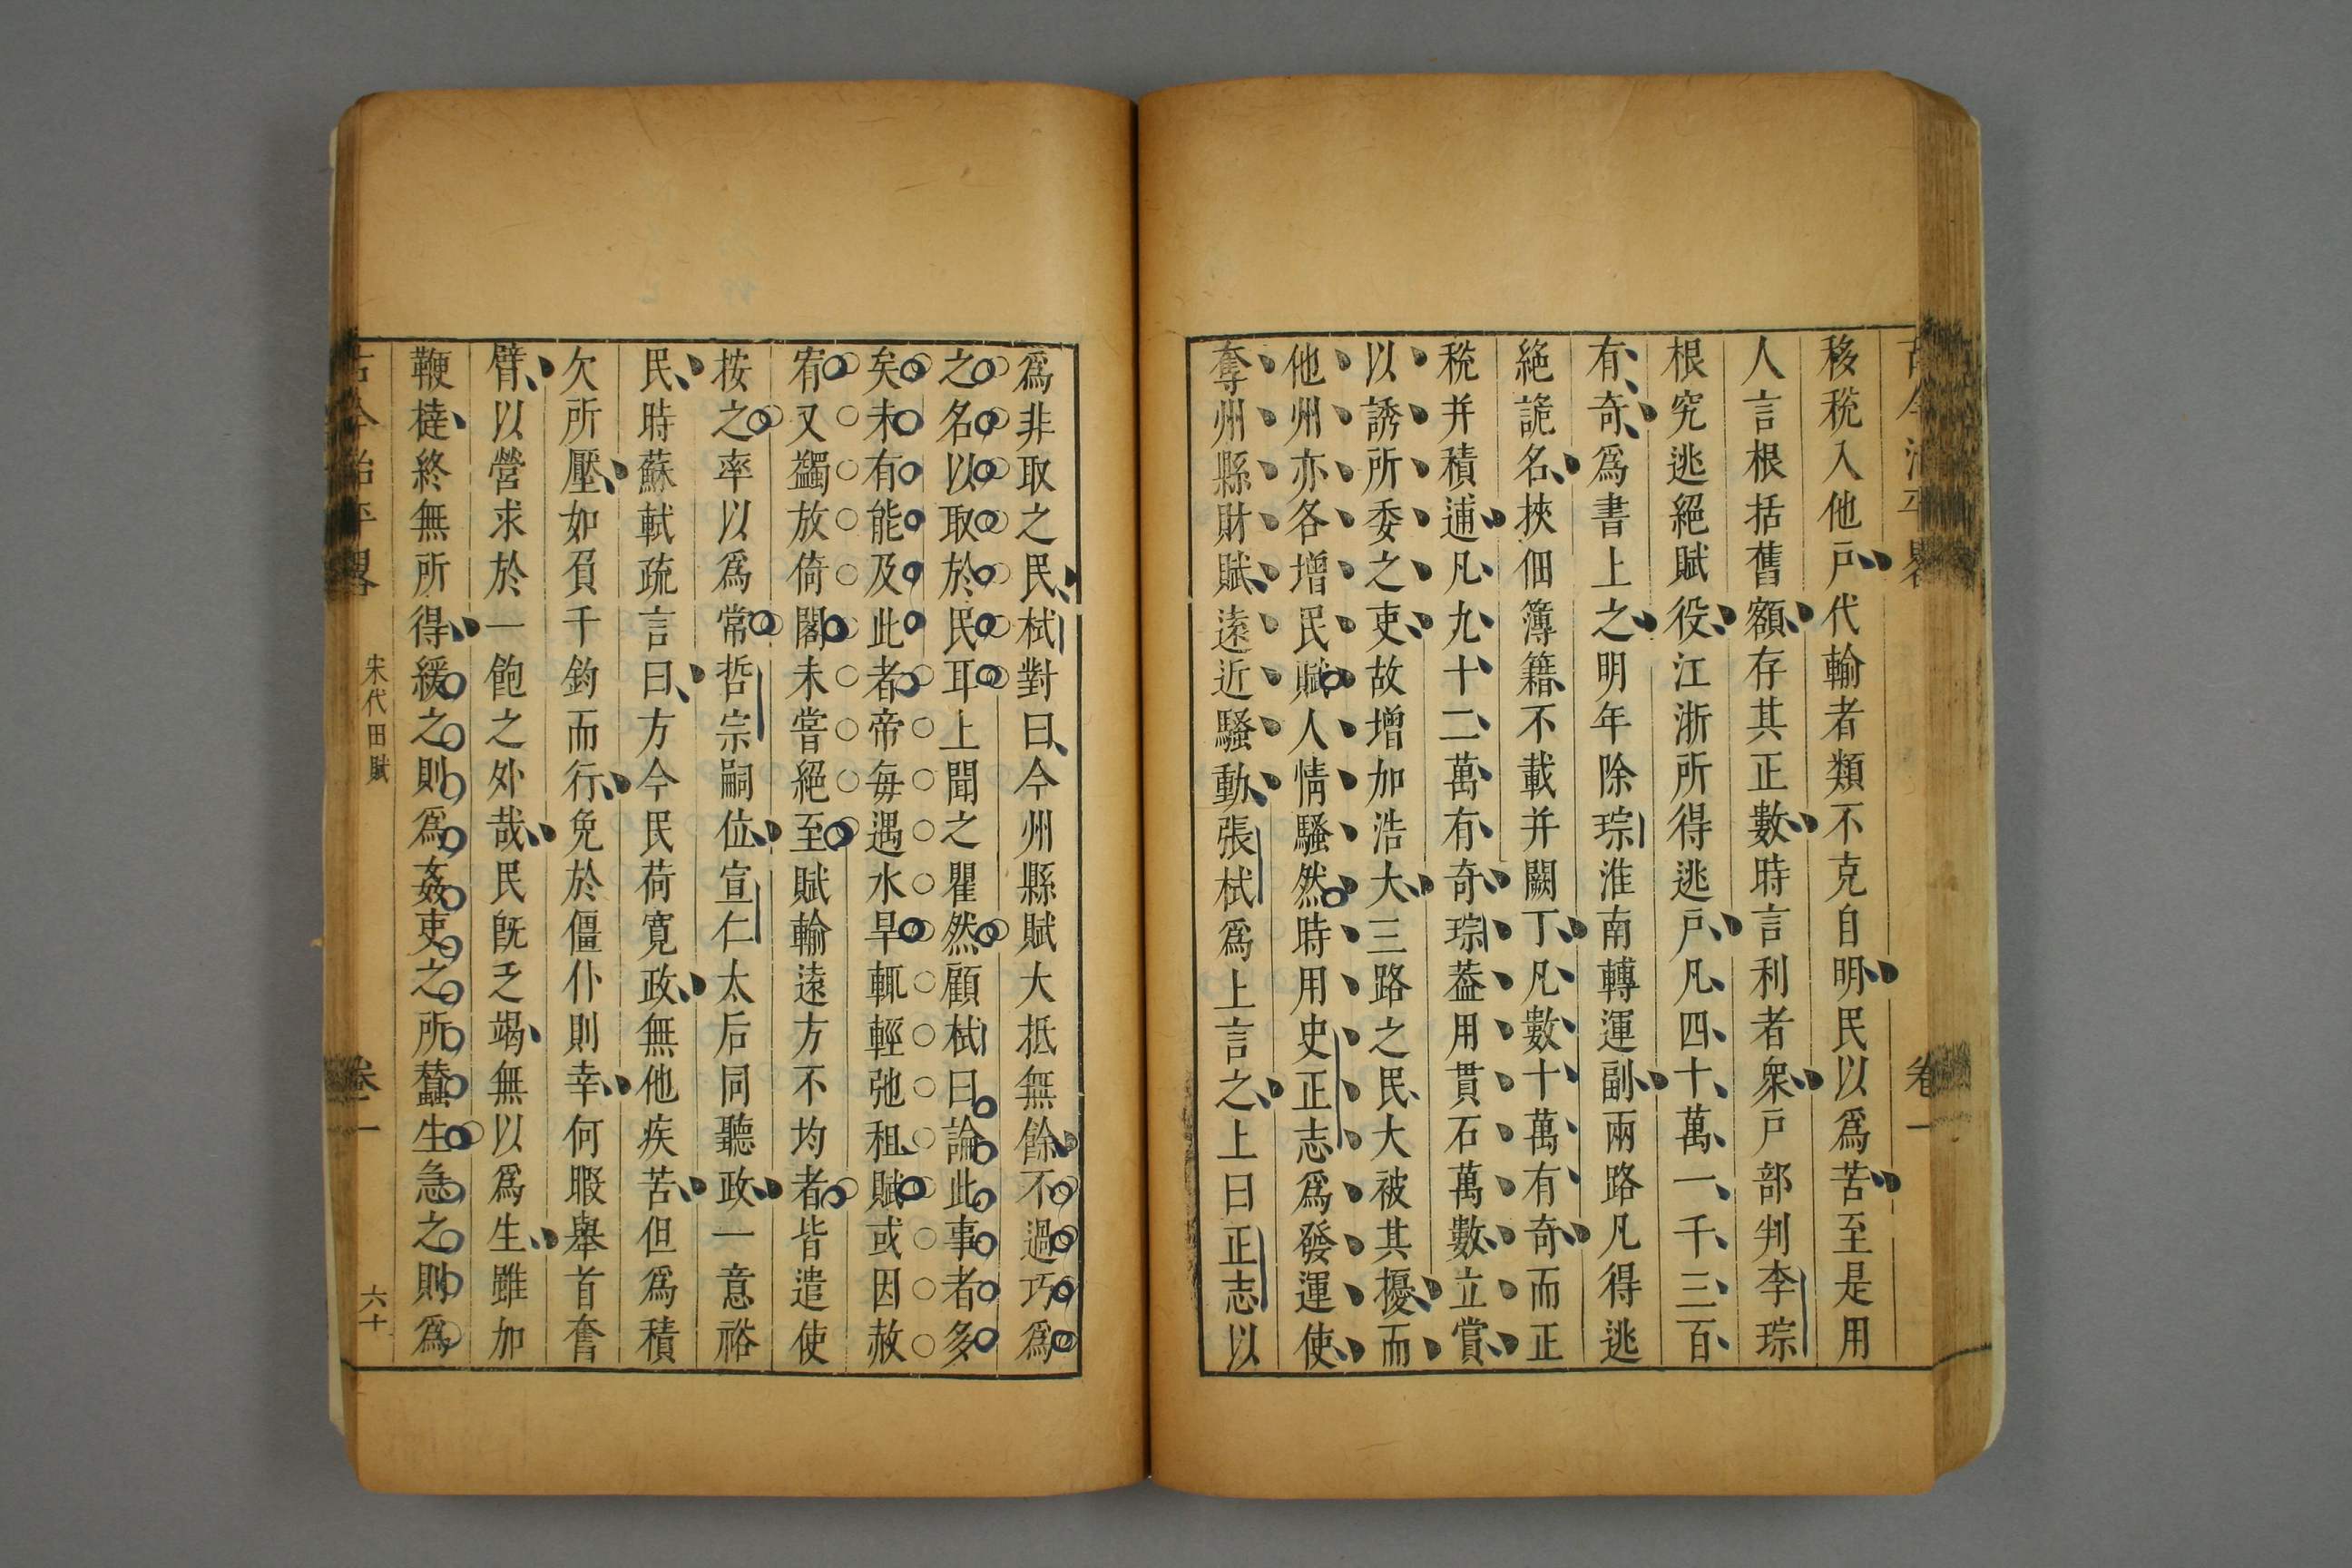 古今治平畧
卷一
移稅入他戸代輸者類不克自明民以爲苦至是用
人言根括舊額存其正數時言利者衆戸部判李琮
根究逃絕賦役江浙所得逃戸凡四十萬一千三百
有奇爲書上之明年除琮淮南轉運副兩路凡得逃
絕詭名挾佃簿籍不載并闕丁凡數十萬有奇而正
稅并積逋凡九十二萬有奇琮葢用貫石萬數立賞
以誘所委之吏故增加浩大三路之民大被其擾而
他州亦各增民賦人情騷然時用史正志爲發運使
奪州縣財賦遠近騷動張栻爲上言之上曰正志以
爲非取之民栻對曰今州縣賦大抵無餘不過巧爲
之名以取於民耳上聞之瞿然顧栻曰論此事者多
矣未有能及此者帝每遇水旱輒輕弛租賦或因赦
宥又蠲放倚閣未嘗絕至賦輸遠方不均者皆遣使
按之率以爲常哲宗嗣位宣仁太后同聽政一意裕
民時蘇軾疏言曰方今民荷寛政無他疾苦但爲積
欠所壓如負千鈞而行免於僵仆則幸何暇舉首奮
臂以營求於一飽之外哉民旣乏竭無以爲生雖加
鞭撻終無所得緩之則爲姦吏之所蠶生急之則爲
古今治平畧
宋代田賦
卷一
六十